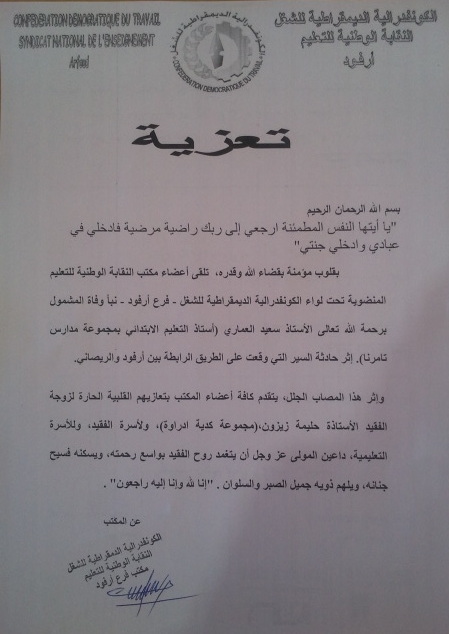 CONFEDERATION DEMOCRATIQUE DU TRAVAIL
SYNDICAT NATIONAL DE L'ENSEIGNEMENT
Arfoud
الكونفدرالية الديمقراطية للشغل
النقابة الوطنية للتعليم
أرفود
الكونفدرالية الديمقراطية للشغل
CONFEDERATION DEMOCRATIQUE DU TRAVAIL
تعزية
بسم الله الرحمان الرحيم
"يا أيتها النفس المطمئنة ارجعي إلى ربك راضية مرضية فادخلي في
عبادي وادخلي جنتي"
بقلوب مؤمنة بقضاء الله وقدره، تلقى أعضاء مكتب النقابة الوطنية للتعليم
المنضوية تحت لواء الكونفدرالية الديمقراطية للشغل - فرع أرفود - نبأ وفاة المشمول
برحمة الله تعالى الأستاذ سعيد العماري (أستاذ التعليم الابتدائي بمجموعة مدارس
تامرنا). إثر حادثة السير التي وقعت على الطريق الرابطة بين أرفود والريصاني.
وإثر هذا المصاب الجلل، يتقدم كافة أعضاء المكتب بتعازيهم القلبية الحارة لزوجة
الفقيد الأستاذة حليمة زيزون،(مجموعة كدية ادراوة)، ولأسرة الفقيد، وللأسرة
التعليمية، داعين المولى عز وجل أن يتغمد روح الفقيد بواسع رحمته، ويسكنه فسيح
جنانه، ويلهم ذويه جميل الصبر والسلوان . "إنا لله وإنا إليه راجعون" .
عن المكتب
الكونفدرالية الديمقراطية للشغل
النقابة الوطنية للتعليم
مكتب فرع أرفود